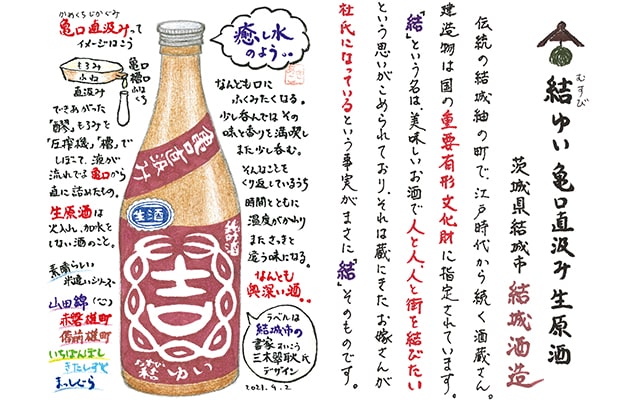 結ゆい 亀口直汲み 生原酒
むすび
茨城県結城市 結城酒造
伝統の結城紬の町で、江戸時代から続く酒蔵さん。
建造物は国の重要有形文化財に指定されています。
「結」という名は、美味しいお酒で人と人、人と街を結びたい
という思いがこめられており、それは蔵にきたお嫁さんが
杜氏になっているという事実がまさに「結」そのものです。
癒し水
のよう..
なんとも口に
ふくみたくなる。
少し呑んではその
味と香りを満喫し
また少し呑む。
そんなことを
くり返しているうち
時間とともに
温度がかわり
またさっきと
違う味になる。
なんとも
奥深い酒..
ラベルは
結城市の
書家
三木翠耿氏
デザイン
2021.9.2
かめくちじかぐみ
亀口直汲みって
イメージはこう
もろみ
ふね
亀口
槽口
ふなくち
直汲み
できあがった
「醪」もろみを
「圧搾機」「槽」で
しぼって、液が
流れでる亀口から
直に詰めたもの。
生原酒は
火入れ、加水を
しない酒のこと。
素晴らしい
米違いシリーズ
山田錦(心)
赤磐雄町
備前雄町
いちぼんぼし
きたしずく
まっしぐら
亀口直汲み
生酒
純米酒
吉
むすび
結ゆい